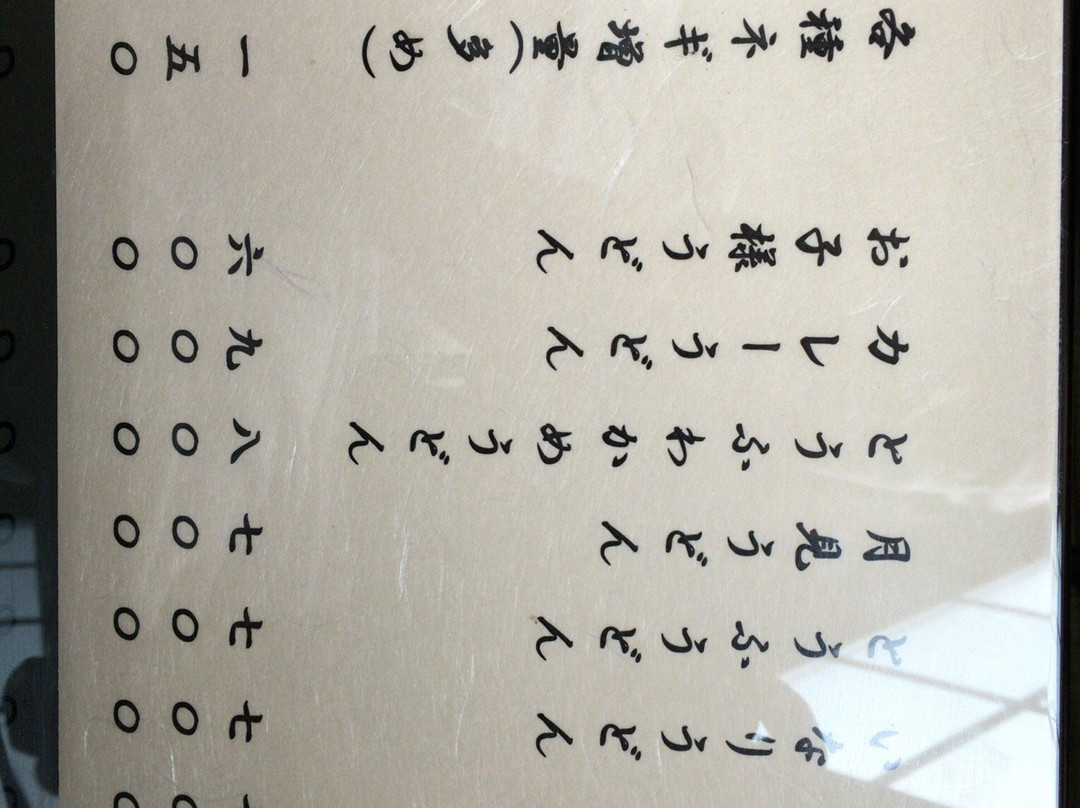 いなりうどん 七〇〇
とうふうどん 七〇〇
月見うどん 七〇〇
とうふわかめうどん 八〇〇
カレーうどん 九〇〇
お子様うどん 六〇〇
各種ネギ増量(多め) 一五〇